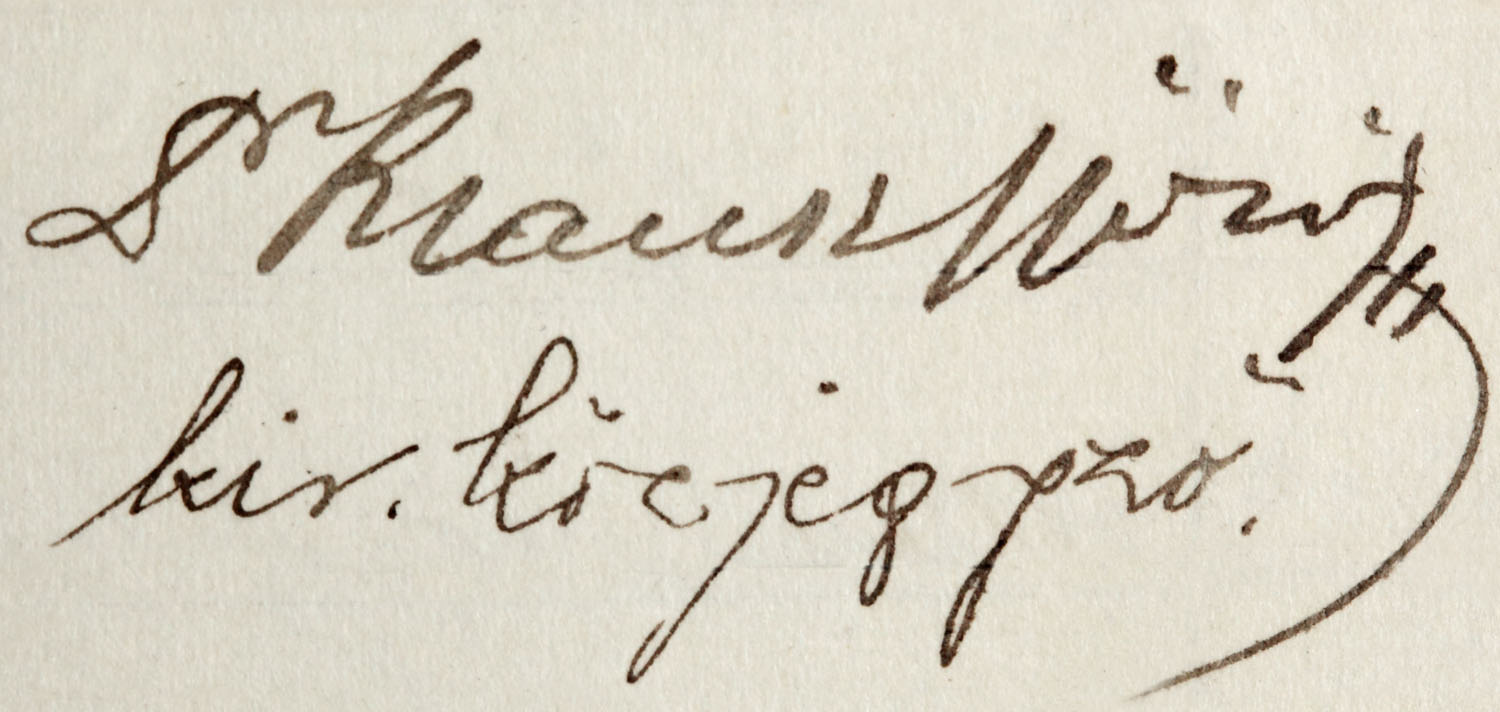 Dr Kraus Móric
kir. közjegyző.